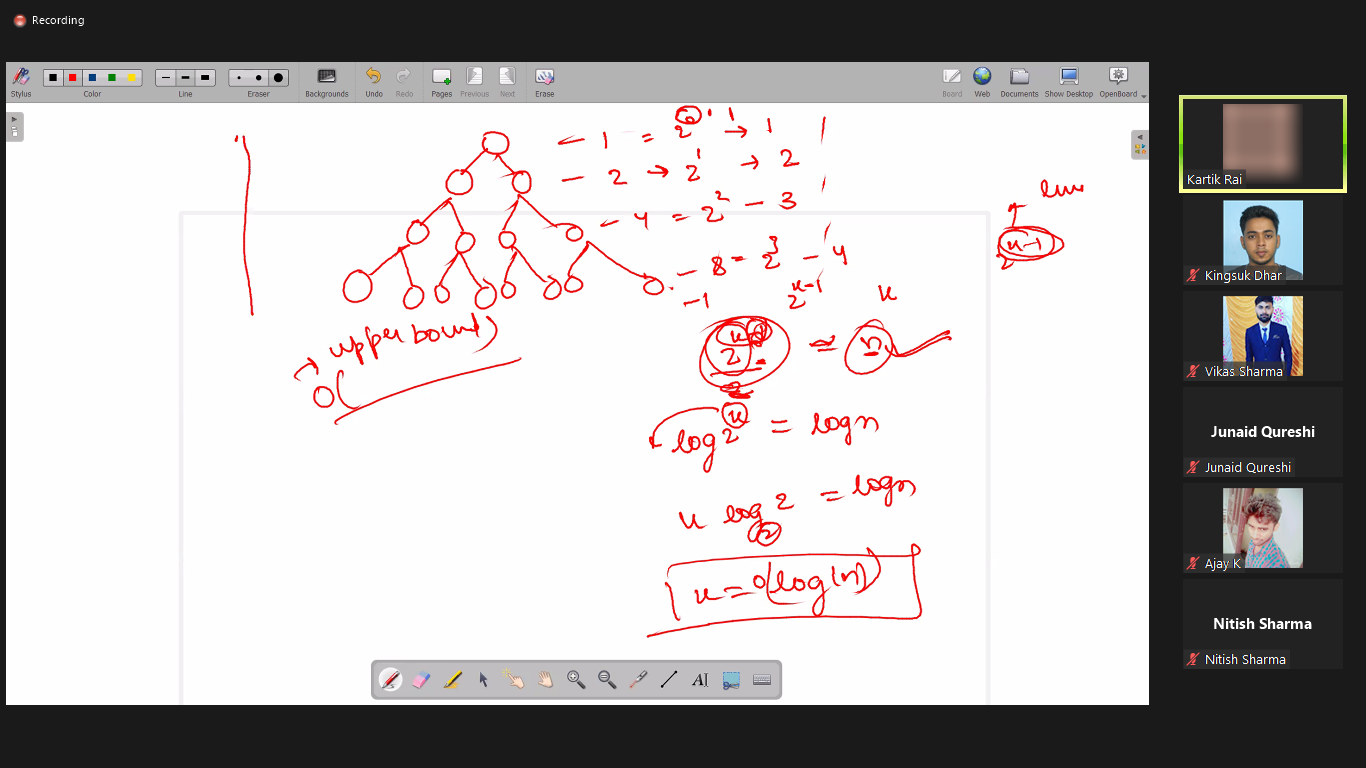 Recording
Stylus
Color
Line
Eraser
Backgrounds
Undo
Redo
Pages
Previous
Next
Erase
Board
Web
Documents
Show Desktop
OpenBoard
← 1 = 2^0 → 1
– 2 → 2^1 → 2
– 4 = 2^2 – 3
– 8 = 2^3 – 4
–1 2^x-1 x
2^x ≃ n
log 2^x = log n
x log_2 2 = log n
x = O(log(n))
→ upper bound)
O(
2^x-1
Kartik Rai
Kingsuk Dhar
Vikas Sharma
Junaid Qureshi
Junaid Qureshi
Ajay K
Nitish Sharma
Nitish Sharma